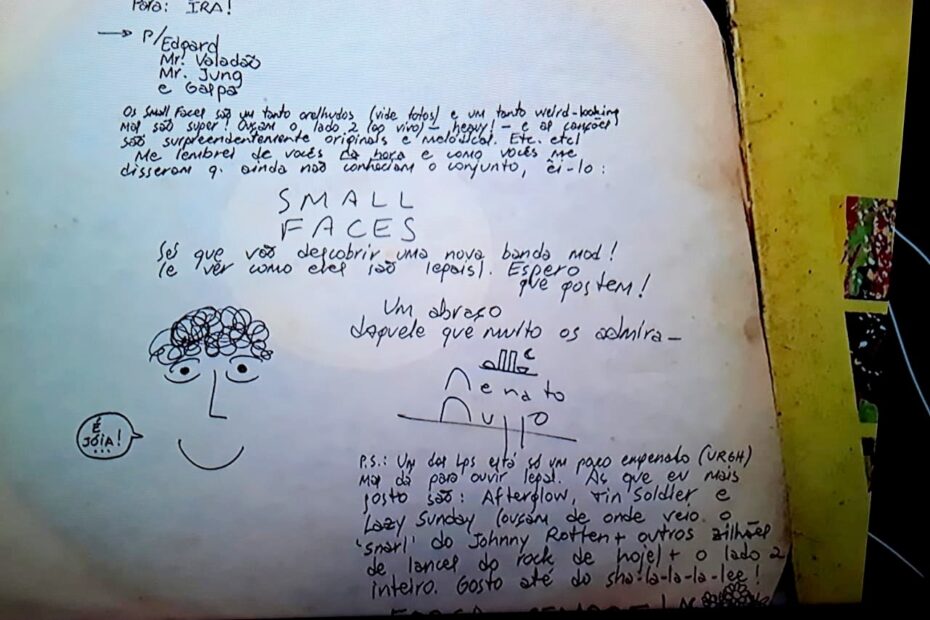 Para: IRA!
→ P/Edgard
Mr. Valadão
Mr. Jung
e Gaspa
Os Small Faces são um tanto orelhudos (vide fotos) e um tanto weird-looking
Mas são super! Ouçam o lado 2 (ao vivo) - heavy! - e as canções
são surpreendentemente originais e melódicas. Etc. etc!
Me lembrei de vocês na hora e como vocês me
disseram q. ainda não conheciam o conjunto, ei-lo:
SMALL
FACES
Sei que vão descobrir uma nova banda mod!
(e ver como eles são legais). Espero
que gostem!
Um abraço
daquele que muito os admira -
Renato
Russo
É
JÓIA!
...
P.S.: Um dos lps está só um pouco empenado (URGH)
Mas dá para ouvir legal. As que eu mais
gosto são: Afterglow, Tin Soldier e
Lazy Sunday (ouçam de onde veio o
'snarl' do Johnny Rotten + outros zilhões
de lances do rock de hoje) + o lado 2
inteiro. Gosto até do sha-la-la-la-lee!